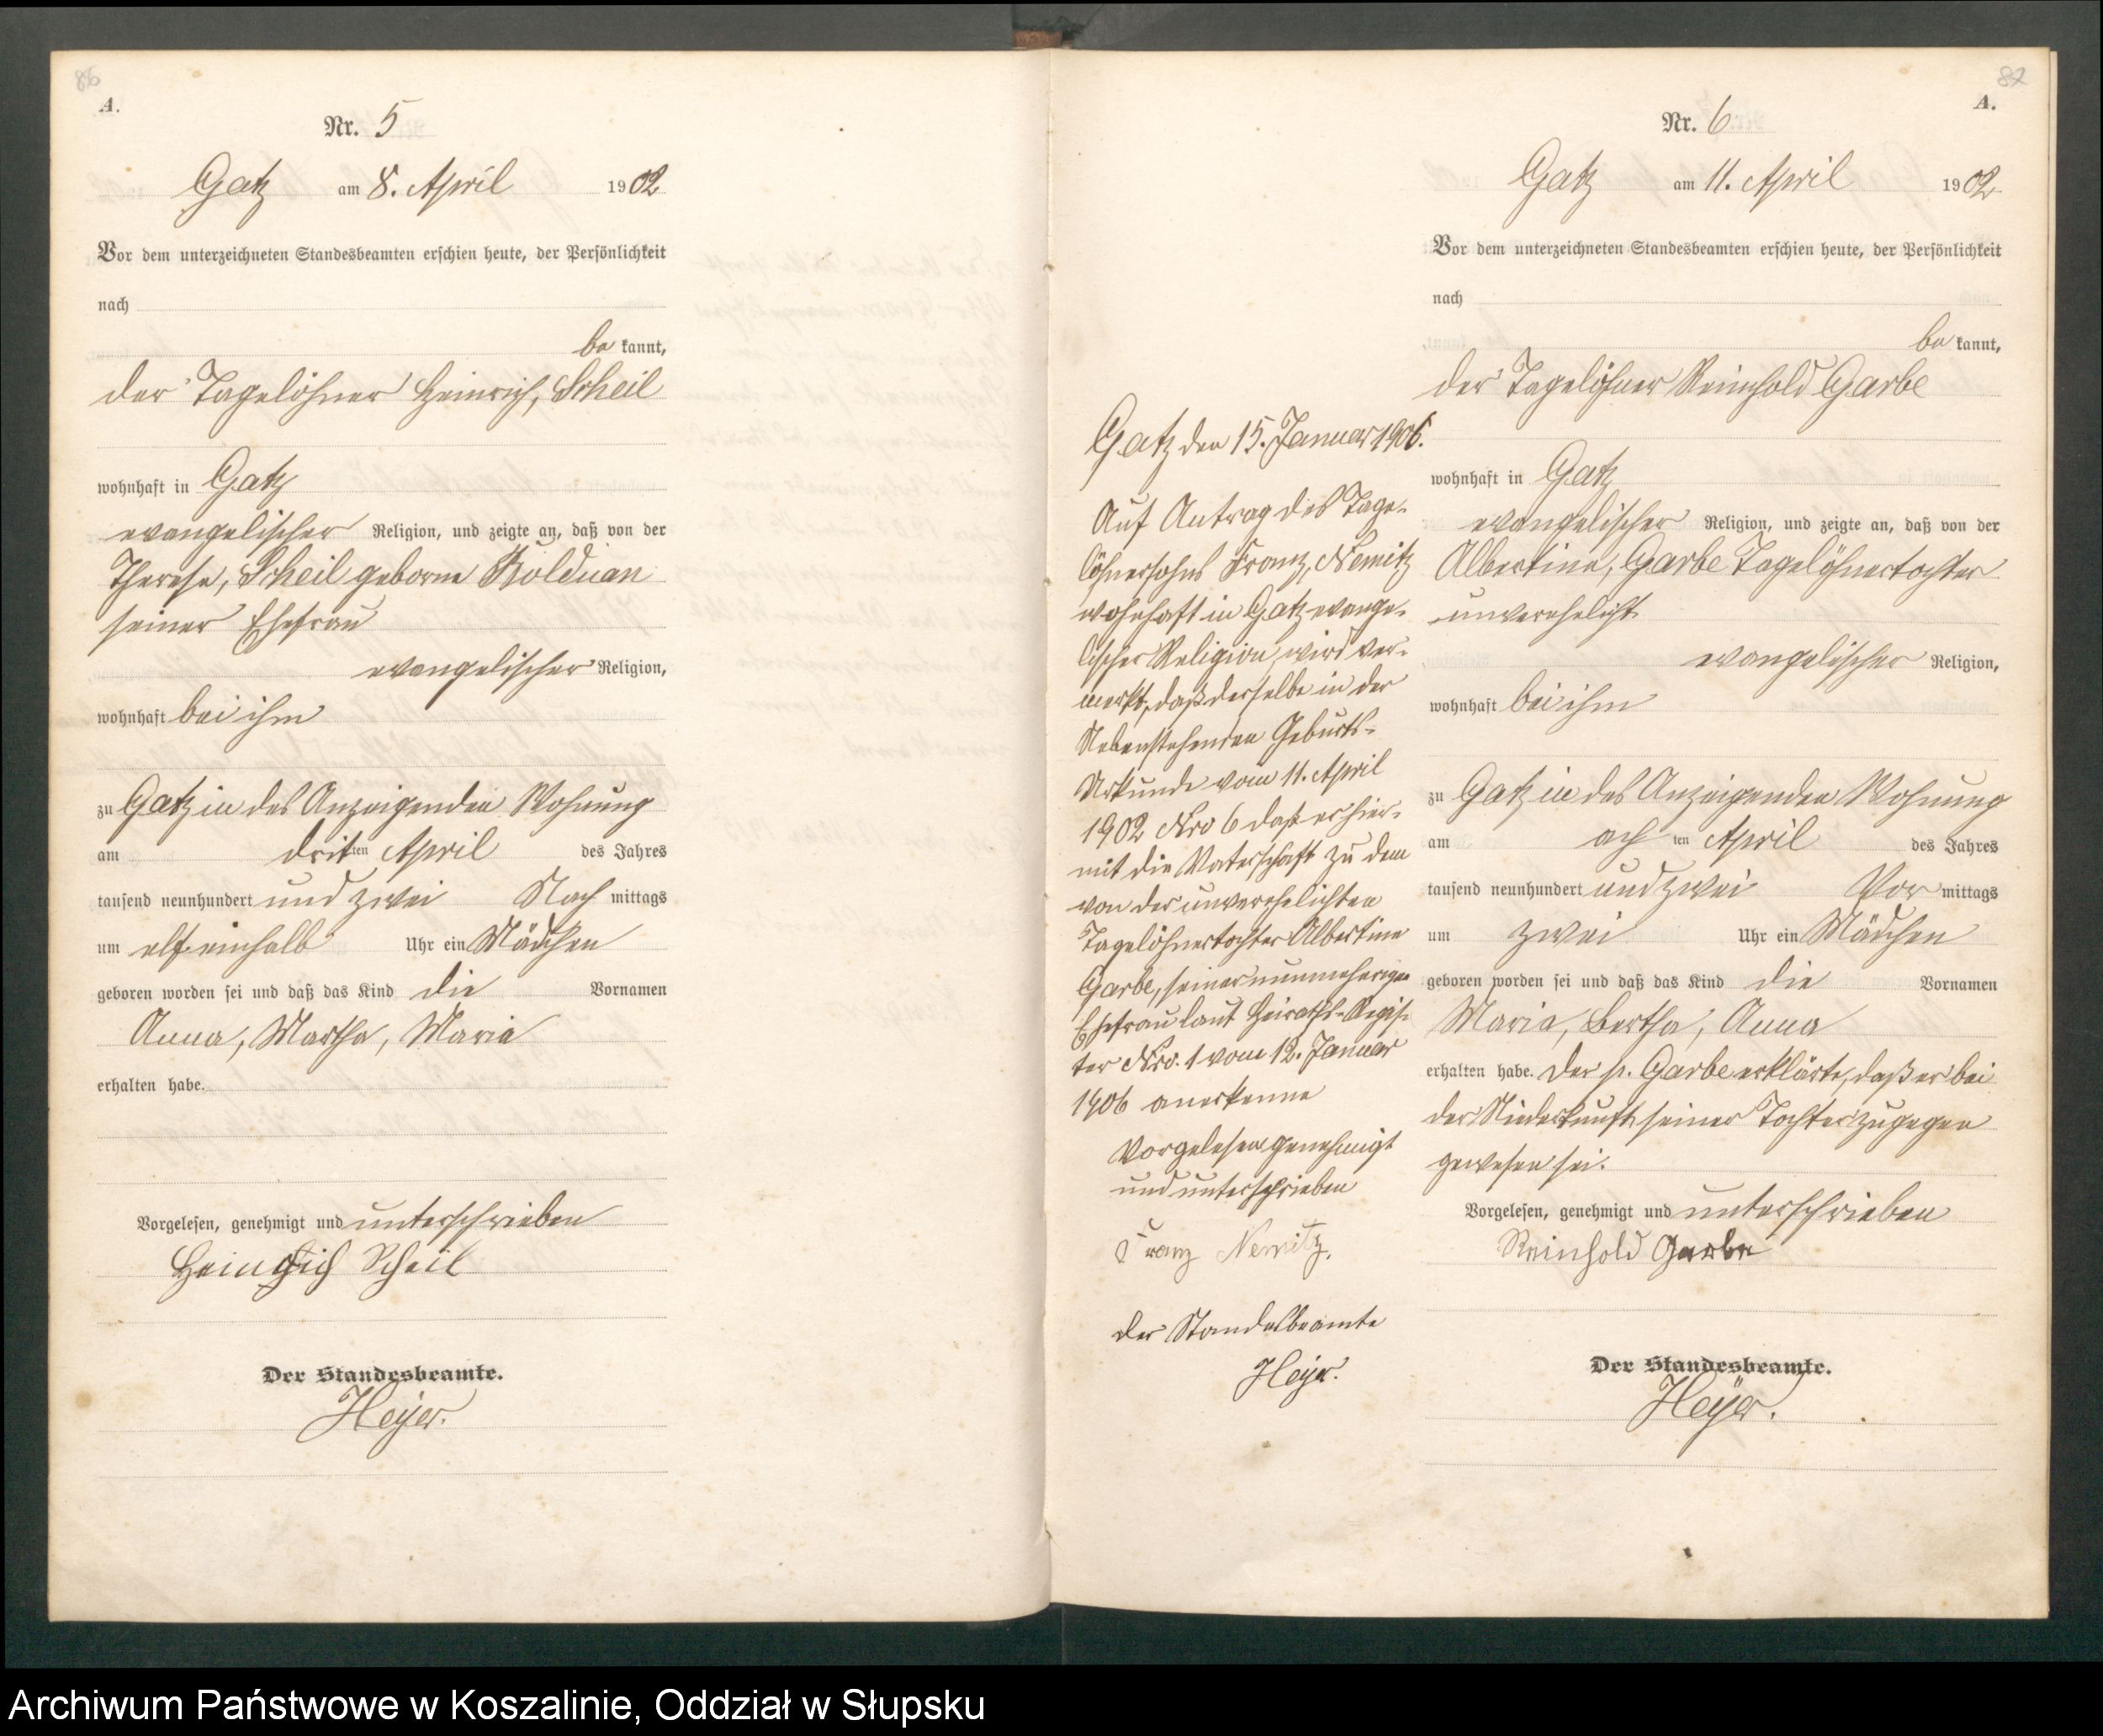 86
A.
Nr. 5
Gatz am 8. April 1902
Vor dem unterzeichneten Standesbeamten erschien heute, der Persönlichkeit
nach
be kannt,
der Tagelöhner Heinrich, Scheil
wohnhaft in Gatz
evangelischer Religion, und zeigte an, daß von der
Therese, Scheil geborne Kolduan
seiner Ehefrau
evangelischer Religion,
wohnhaft bei ihm
zu Gatz in des Anzeigenden Wohnung
am dritten April des Jahres
tausend neunhundert und zwei Nach mittags
um elf einhalb Uhr ein Mädchen
geboren worden sei und daß das Kind die Vornamen
Anna, Martha, Maria
erhalten habe.
Vorgelesen, genehmigt und unterschrieben
Heinrich Scheil
Der Standesbeamte.
Heyer.
Gatz den 15. Januar 1906.
Auf Antrag des Tage-
löhnersohns Franz, Nemitz
wohnhaft in Gatz evange-
lischer Religion, wird ver-
merkt, daß derselbe in der
Nebenstehenden Geburts-
Urkunde vom 11. April
1902 Nro 6 daß er hier-
mit die Vaterschaft zu dem
von der unverehelichten
Tagelöhnertochter Albertine
Garbe, seiner nunmeherigen
Ehefrau laut Heiraths-Regis-
ter Nro. 1 vom 12. Januar
1906 anerkenne
Vorgelesen genehmigt
und unterschrieben
Franz Nemitz.
Der Standesbeamte
Heyer.
87
A.
Nr. 6
Gatz am 11. April 1902
Vor dem unterzeichneten Standesbeamten erschien heute, der Persönlichkeit
nach
be kannt,
der Tagelöhner Reinhold Garbe
wohnhaft in Gatz
evangelischer Religion, und zeigte an, daß von der
Albertine, Garbe Tagelöhnertochter
unverehelicht
evangelischer Religion,
wohnhaft bei ihm
zu Gatz in des Anzeigenden Wohnung
am achten April des Jahres
tausend neunhundert und zwei Vor mittags
um zwei Uhr ein Mädchen
geboren worden sei und daß das Kind die Vornamen
Maria, Bertha, Anna
erhalten habe. Der p. Garbe erklärte, daß er bei
der Niederkunft seiner Tochter zugegen
gewesen sei.
Vorgelesen, genehmigt und unterschrieben
Reinhold Garbe
Der Standesbeamte.
Heyer.
Archiwum Państwowe w Koszalinie, Oddział w Słupsku